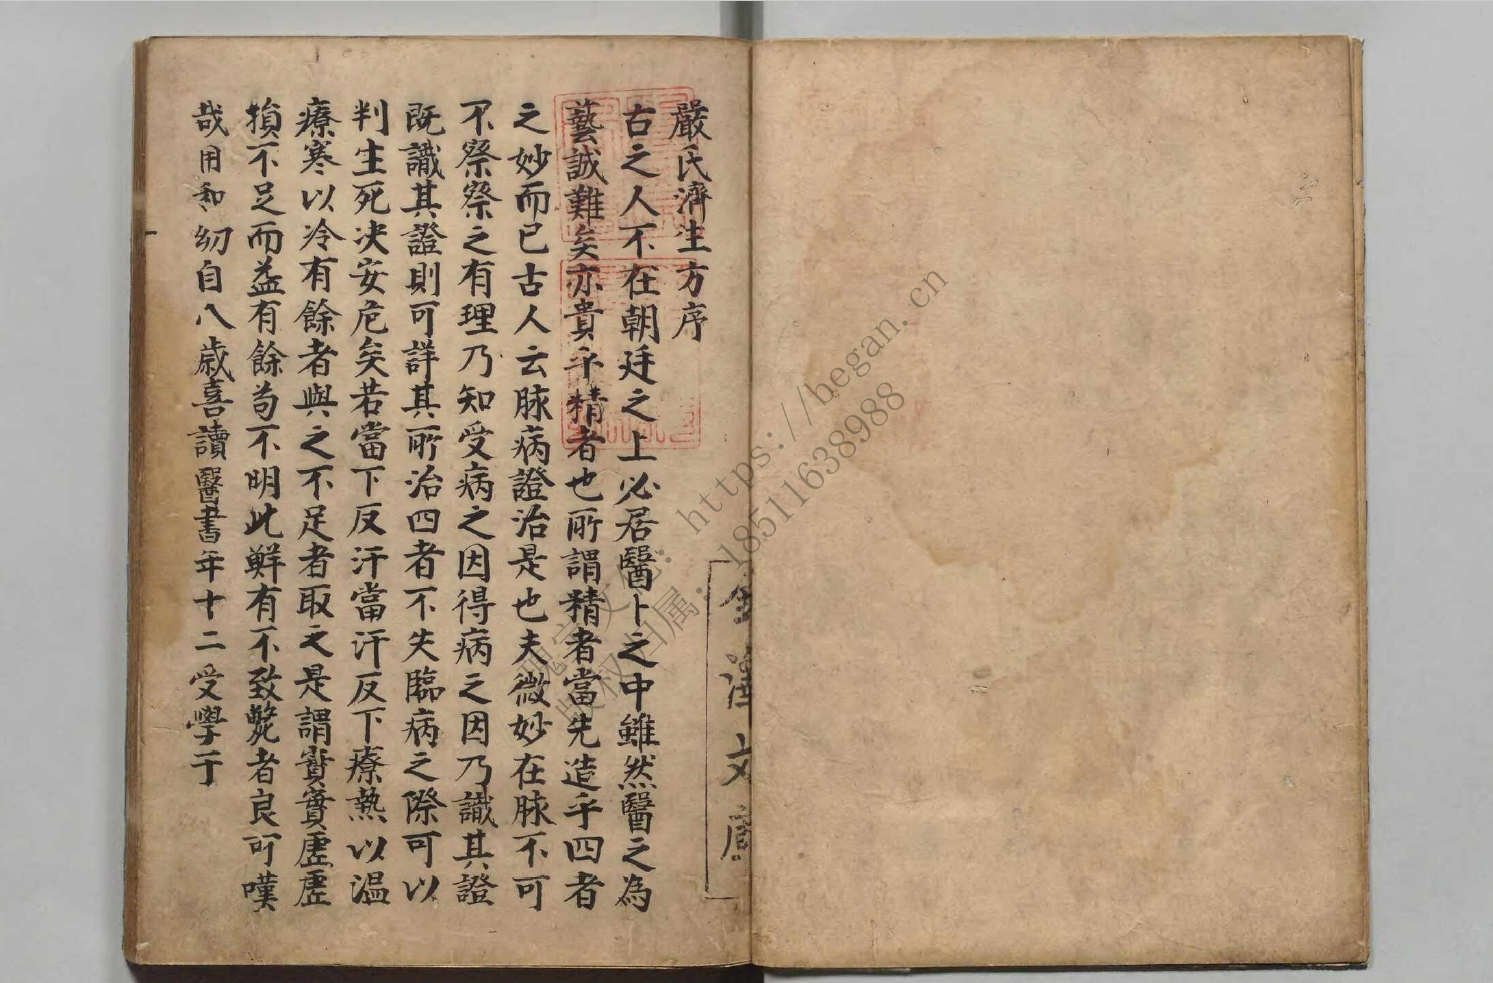 嚴氏濟生方序
古之人不在朝廷之上必居醫卜之中雖然醫之為
藝誠難矣亦貴乎精者也所謂精者當先造乎四者
之妙而已古人云脉病證治是也夫微妙在脉不可
不察察之有理乃知受病之因得病之因乃識其證
既識其證則可詳其所治四者不失臨病之際可以
判生死决安危矣若當下反汗當汗反下療熱以温
療寒以冷有餘者與之不足者取之是謂實實虛虛
損不足而益有餘苟不明此鮮有不致斃者良可嘆
哉用和幼自八歲喜讀醫書年十二受學于
https://began.cn
18511638988
版权归属: